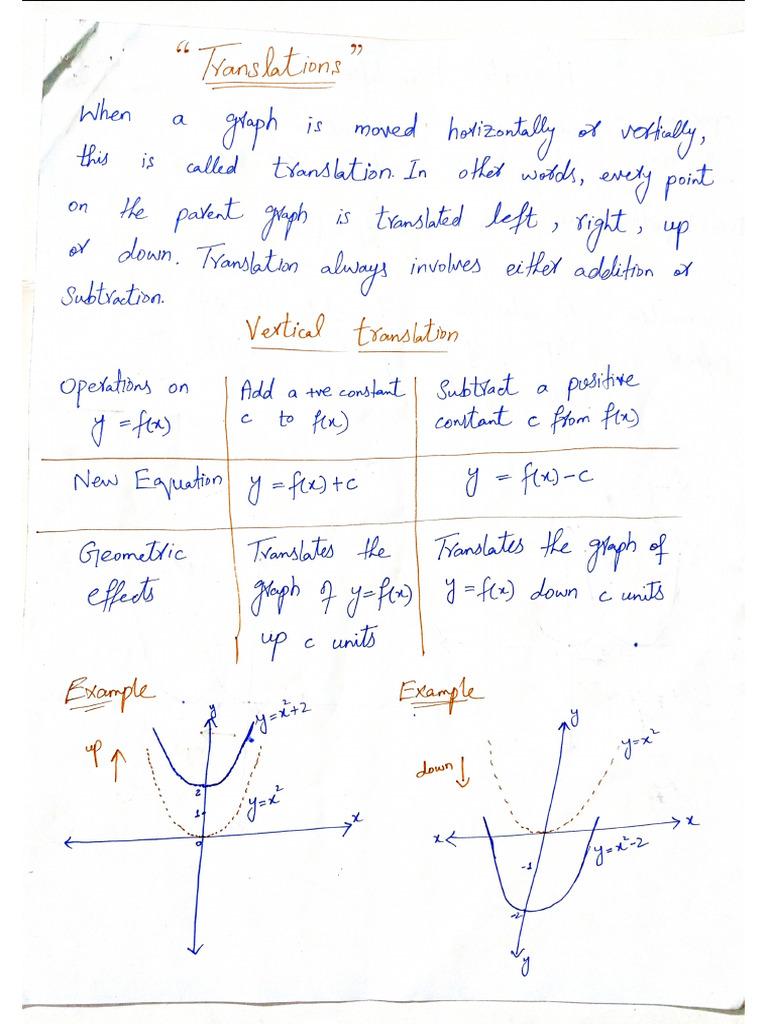 “Translations”
When a graph is moved horizontally or vertically,
this is called translation. In other words, every point
on the parent graph is translated left, right, up
or down. Translation always involves either addition or
Subtraction.
Vertical translation
Operations on
y = f(x)
Add a +ve constant
c to f(x)
Subtract a positive
constant c from f(x)
New Equation
y = f(x)+c
y = f(x)-c
Geometric
effects
Translates the
graph of y=f(x)
up c units
Translates the graph of
y=f(x) down c units
Example
up
y
y=x²+2
2
1
y=x²
x
0
Example
down
y
y=x²
x
x
-1
y=x²-2
-2
y